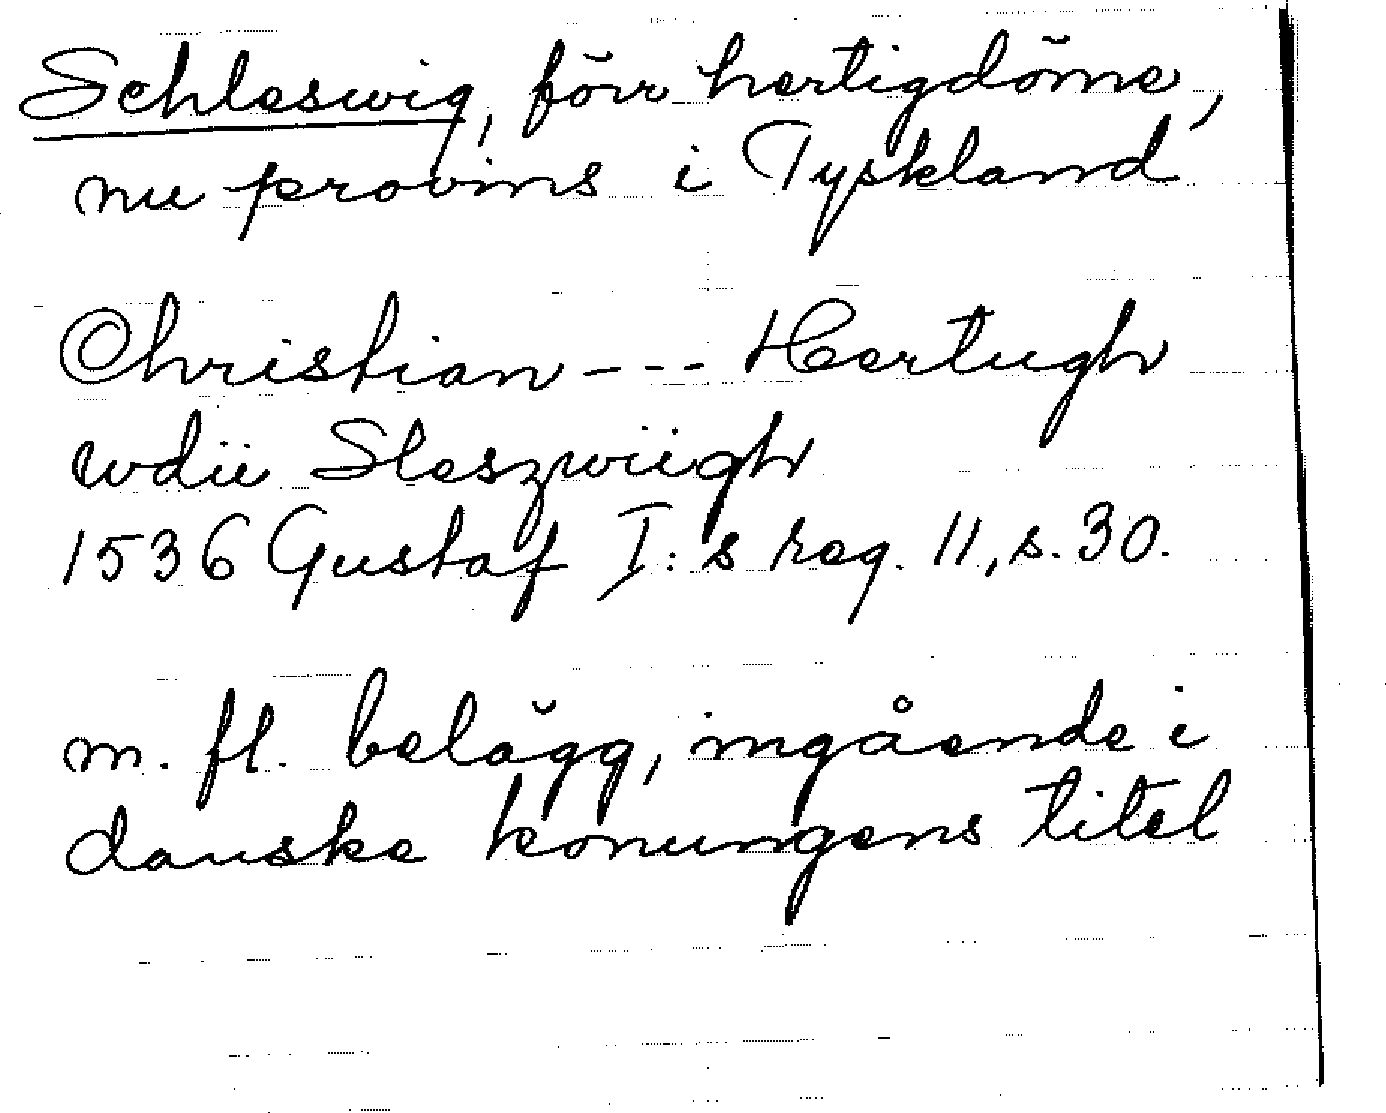 Schleswig, förr hertigdöme,
nu provins i Tyskland
Christian --- Hertugh
wdii Sleszwiigh
1536 Gustaf I:s reg. 11, s. 30.
m. fl. belägg, ingående i
danske konungens titel